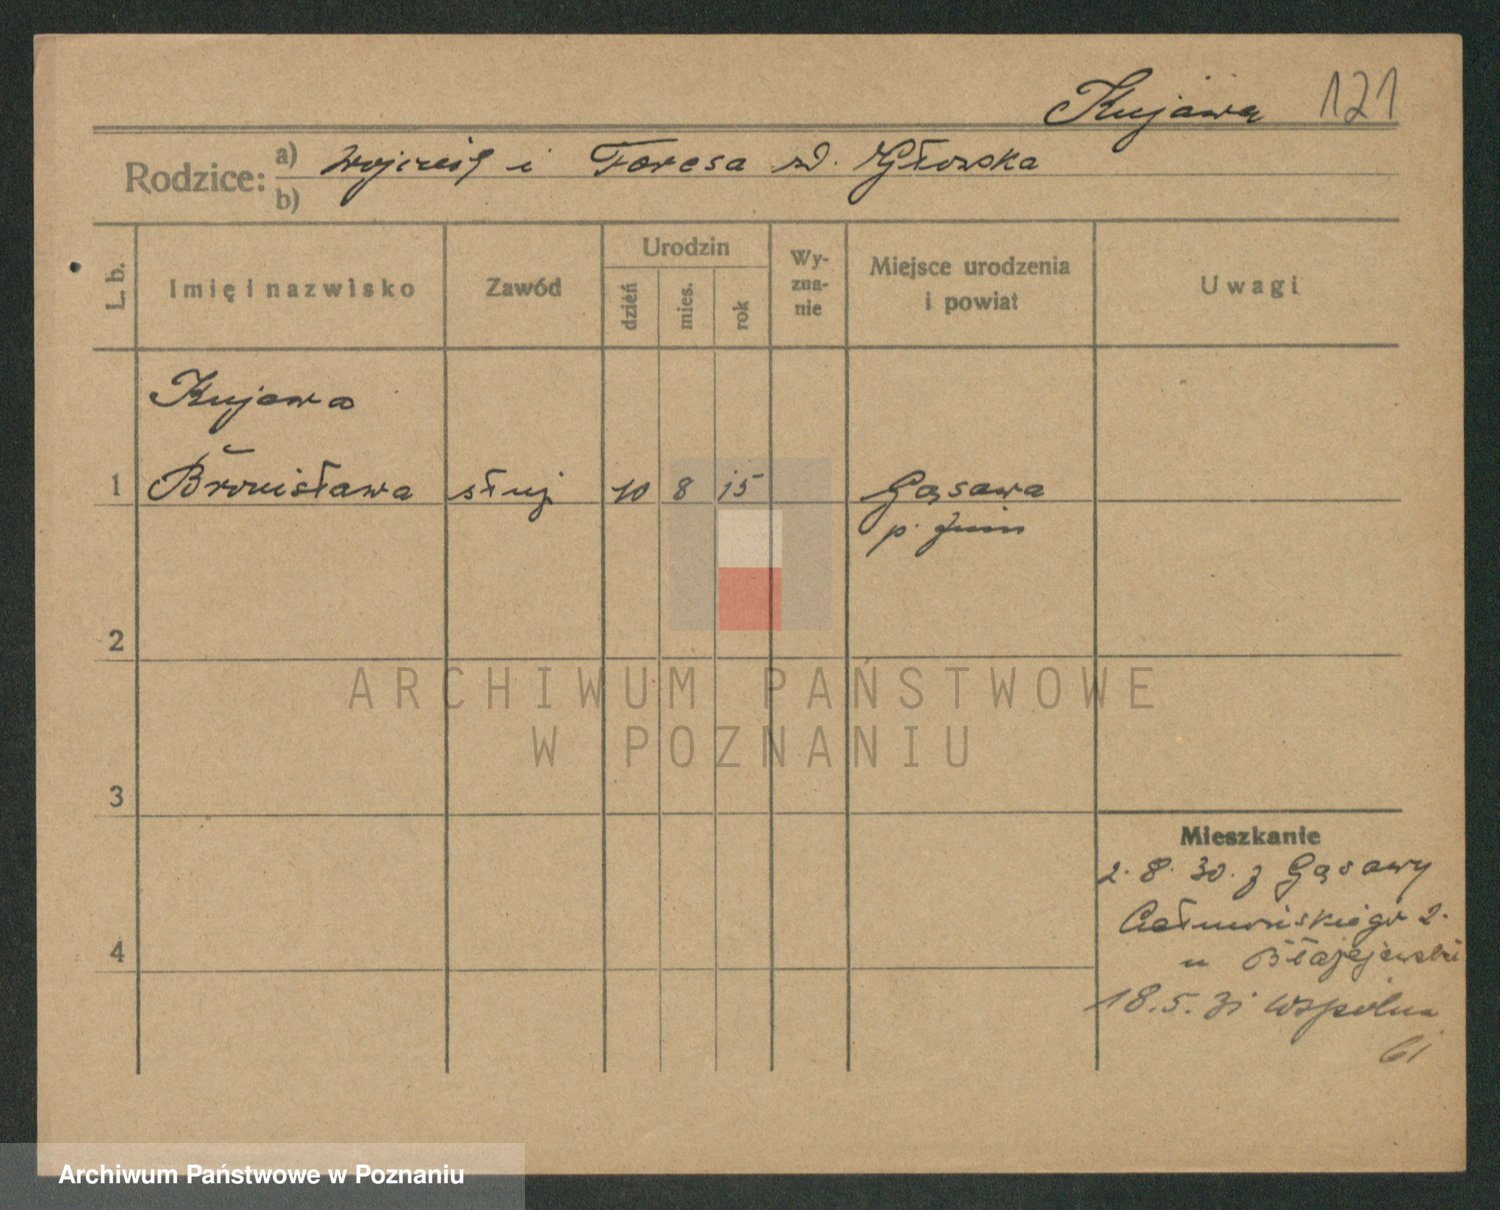 Kujawa 121
Rodzice: a) Wojciech i Teresa zd.
b)
L. b.
Imię i nazwisko
Zawód
Urodzin
dzień
mies.
rok
Wy-
zna-
nie
Miejsce urodzenia
i powiat
Uwagi
Kujawa
1 Bronisława służ 10 8 15 Gąsawa
p. Żnin
2
3
4
Mieszkanie
2. 8. 30. z Gąsawy
2.
u Błażejewski
18. 5. 31 Wspólna
61
ARCHIWUM PAŃSTWOWE
W POZNANIU
Archiwum Państwowe w Poznaniu